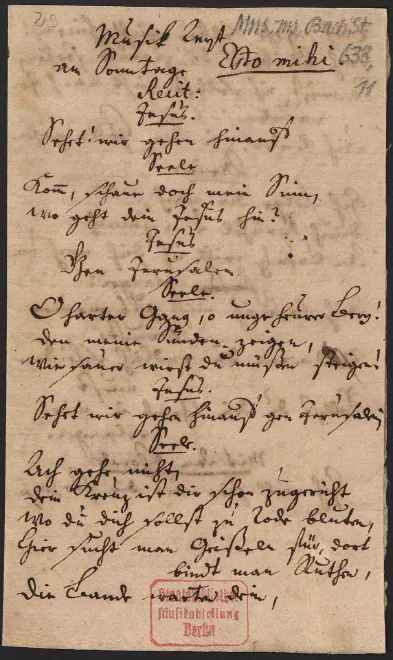 29
Mus. ms. Bach St
Musik Text
633
am Sonntage Esto mihi
11
Recit:
Jesus.
Sehet! wir gehen hinauff
Seele
Kom̅, schaue doch mein Sinn,
Wo geht dein Jesus hin?
Jesus
Gen Jerusalem.
Seele.
O harter Gang, o ungeheurer Berg!
Den meine Sünden zeigen,
Wie sauer wirst du müßen steigen!
Jesus.
Sehet wir gehen hinauff gen Jerusalem
Seele.
Ach gehe nicht,
dein Creuz ist dir schon zugericht
Wo du dich sollst zu Tode bluten,
hier sucht man Geißeln für, dort
bindt man Ruthen,
die Bande warten dein,
Staatsbibliothek
Musikabteilung
Berlin